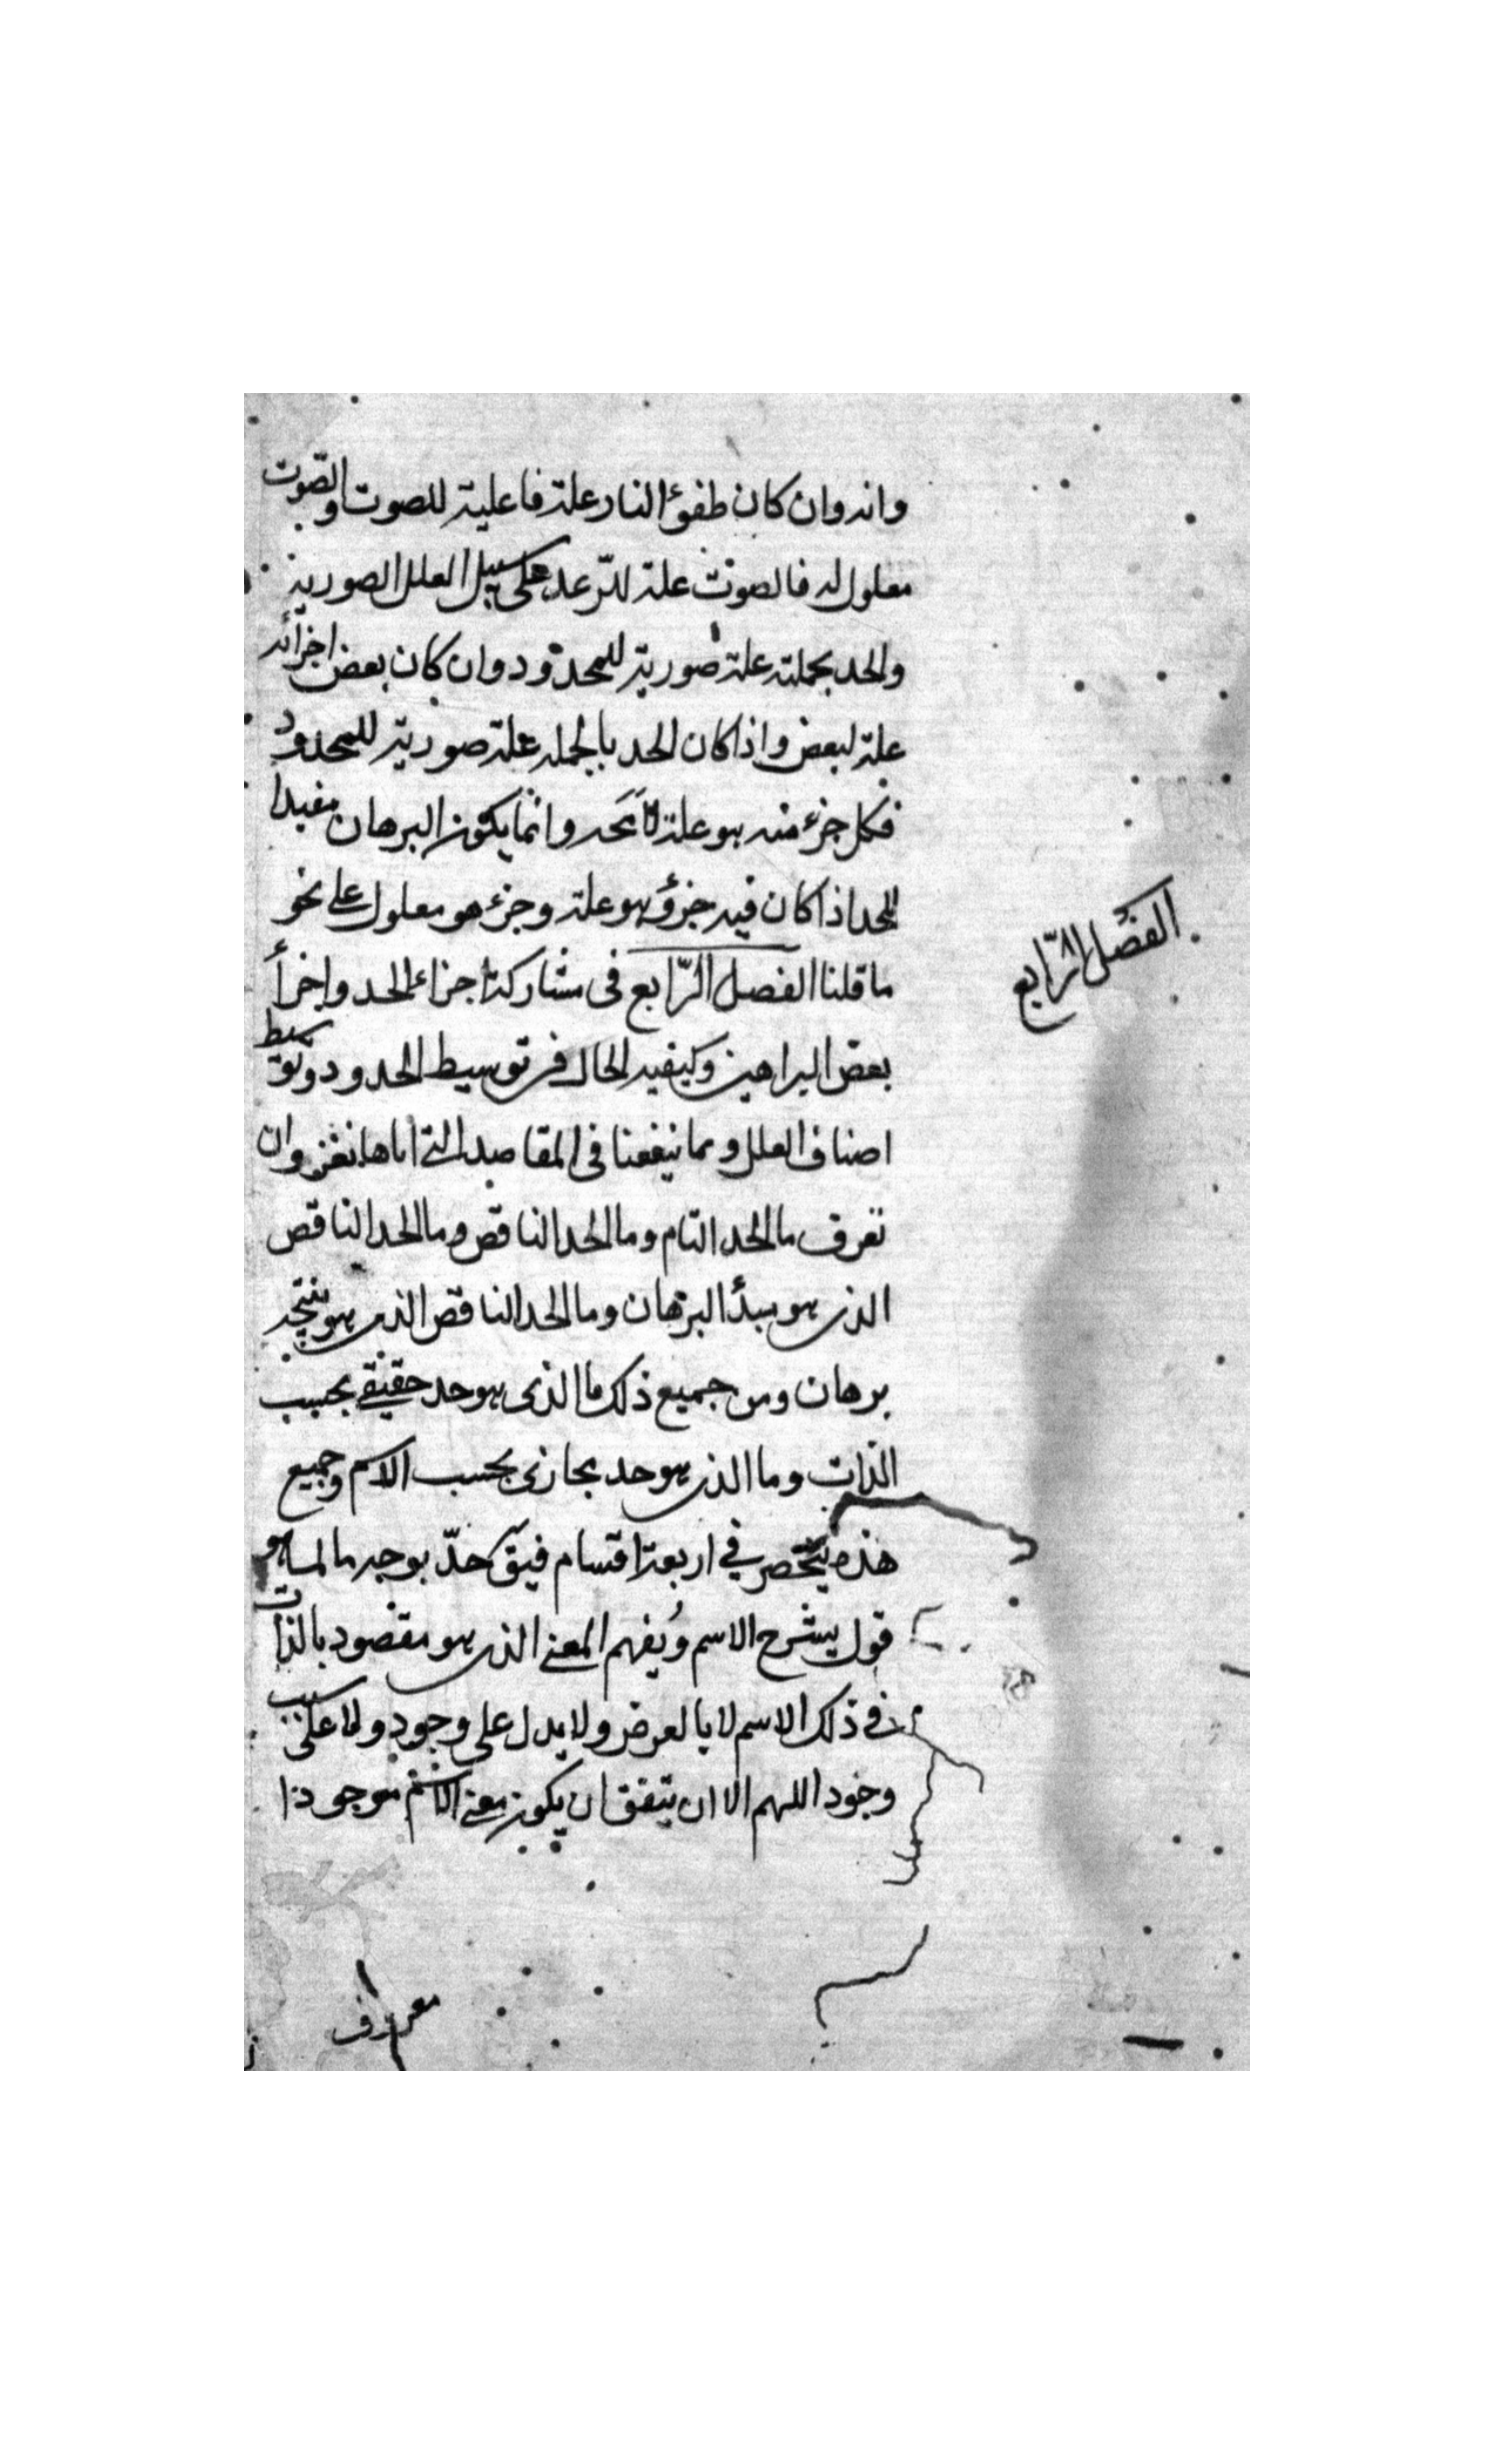 وانه وان كان طفؤ النار علة فاعلية للصوت والصوت
معلول له فالصوت علة للرّعد على سبيل العلل الصورية
والحد بجملته علة صورية للمحدود وان كان بعض اجزائه
علة لبعض واذا كان الحد بالجمله علة صورية للمحدود
فكل جزء منه هو علة لا محه وانما يكون البرهان مفيدا
للحد اذا كان فيه جزؤ هو علة وجزء هو معلول على نحو
ما قلنا الفصل الرّابع فى مشاركة اجزاء الحد واجزأ
الفصل الرّابع
بعض البراهين وكيفيه الحال فى توسيط الحدود وتوسيط
اصناف العلل ومما ينفعنا فى المقاصد التى اياها نغزو ان
نعرف ما الحد التام وما الحد الناقص وما الحد الناقص
الذى هو مبدأ البرهان وما الحد الناقص الذى هو نتيجه
برهان ومن جميع ذلك ما الذى هو حد حقيقى بحسب
الذات وما الذى هو حد مجازى بحسب الاسم وجميع
هذه ينحصر في اربعة اقسام فيق حدّ بوجه ما لما هو
قول يشرح الاسم ويُفهم المعنى الذى هو مقصود بالذات
في ذلك الاسم لا بالعرض ولا يدل على وجود ولا على سبب
وجود اللهم الا ان يتفق ان يكون معنى الاسم موجودا
معروف